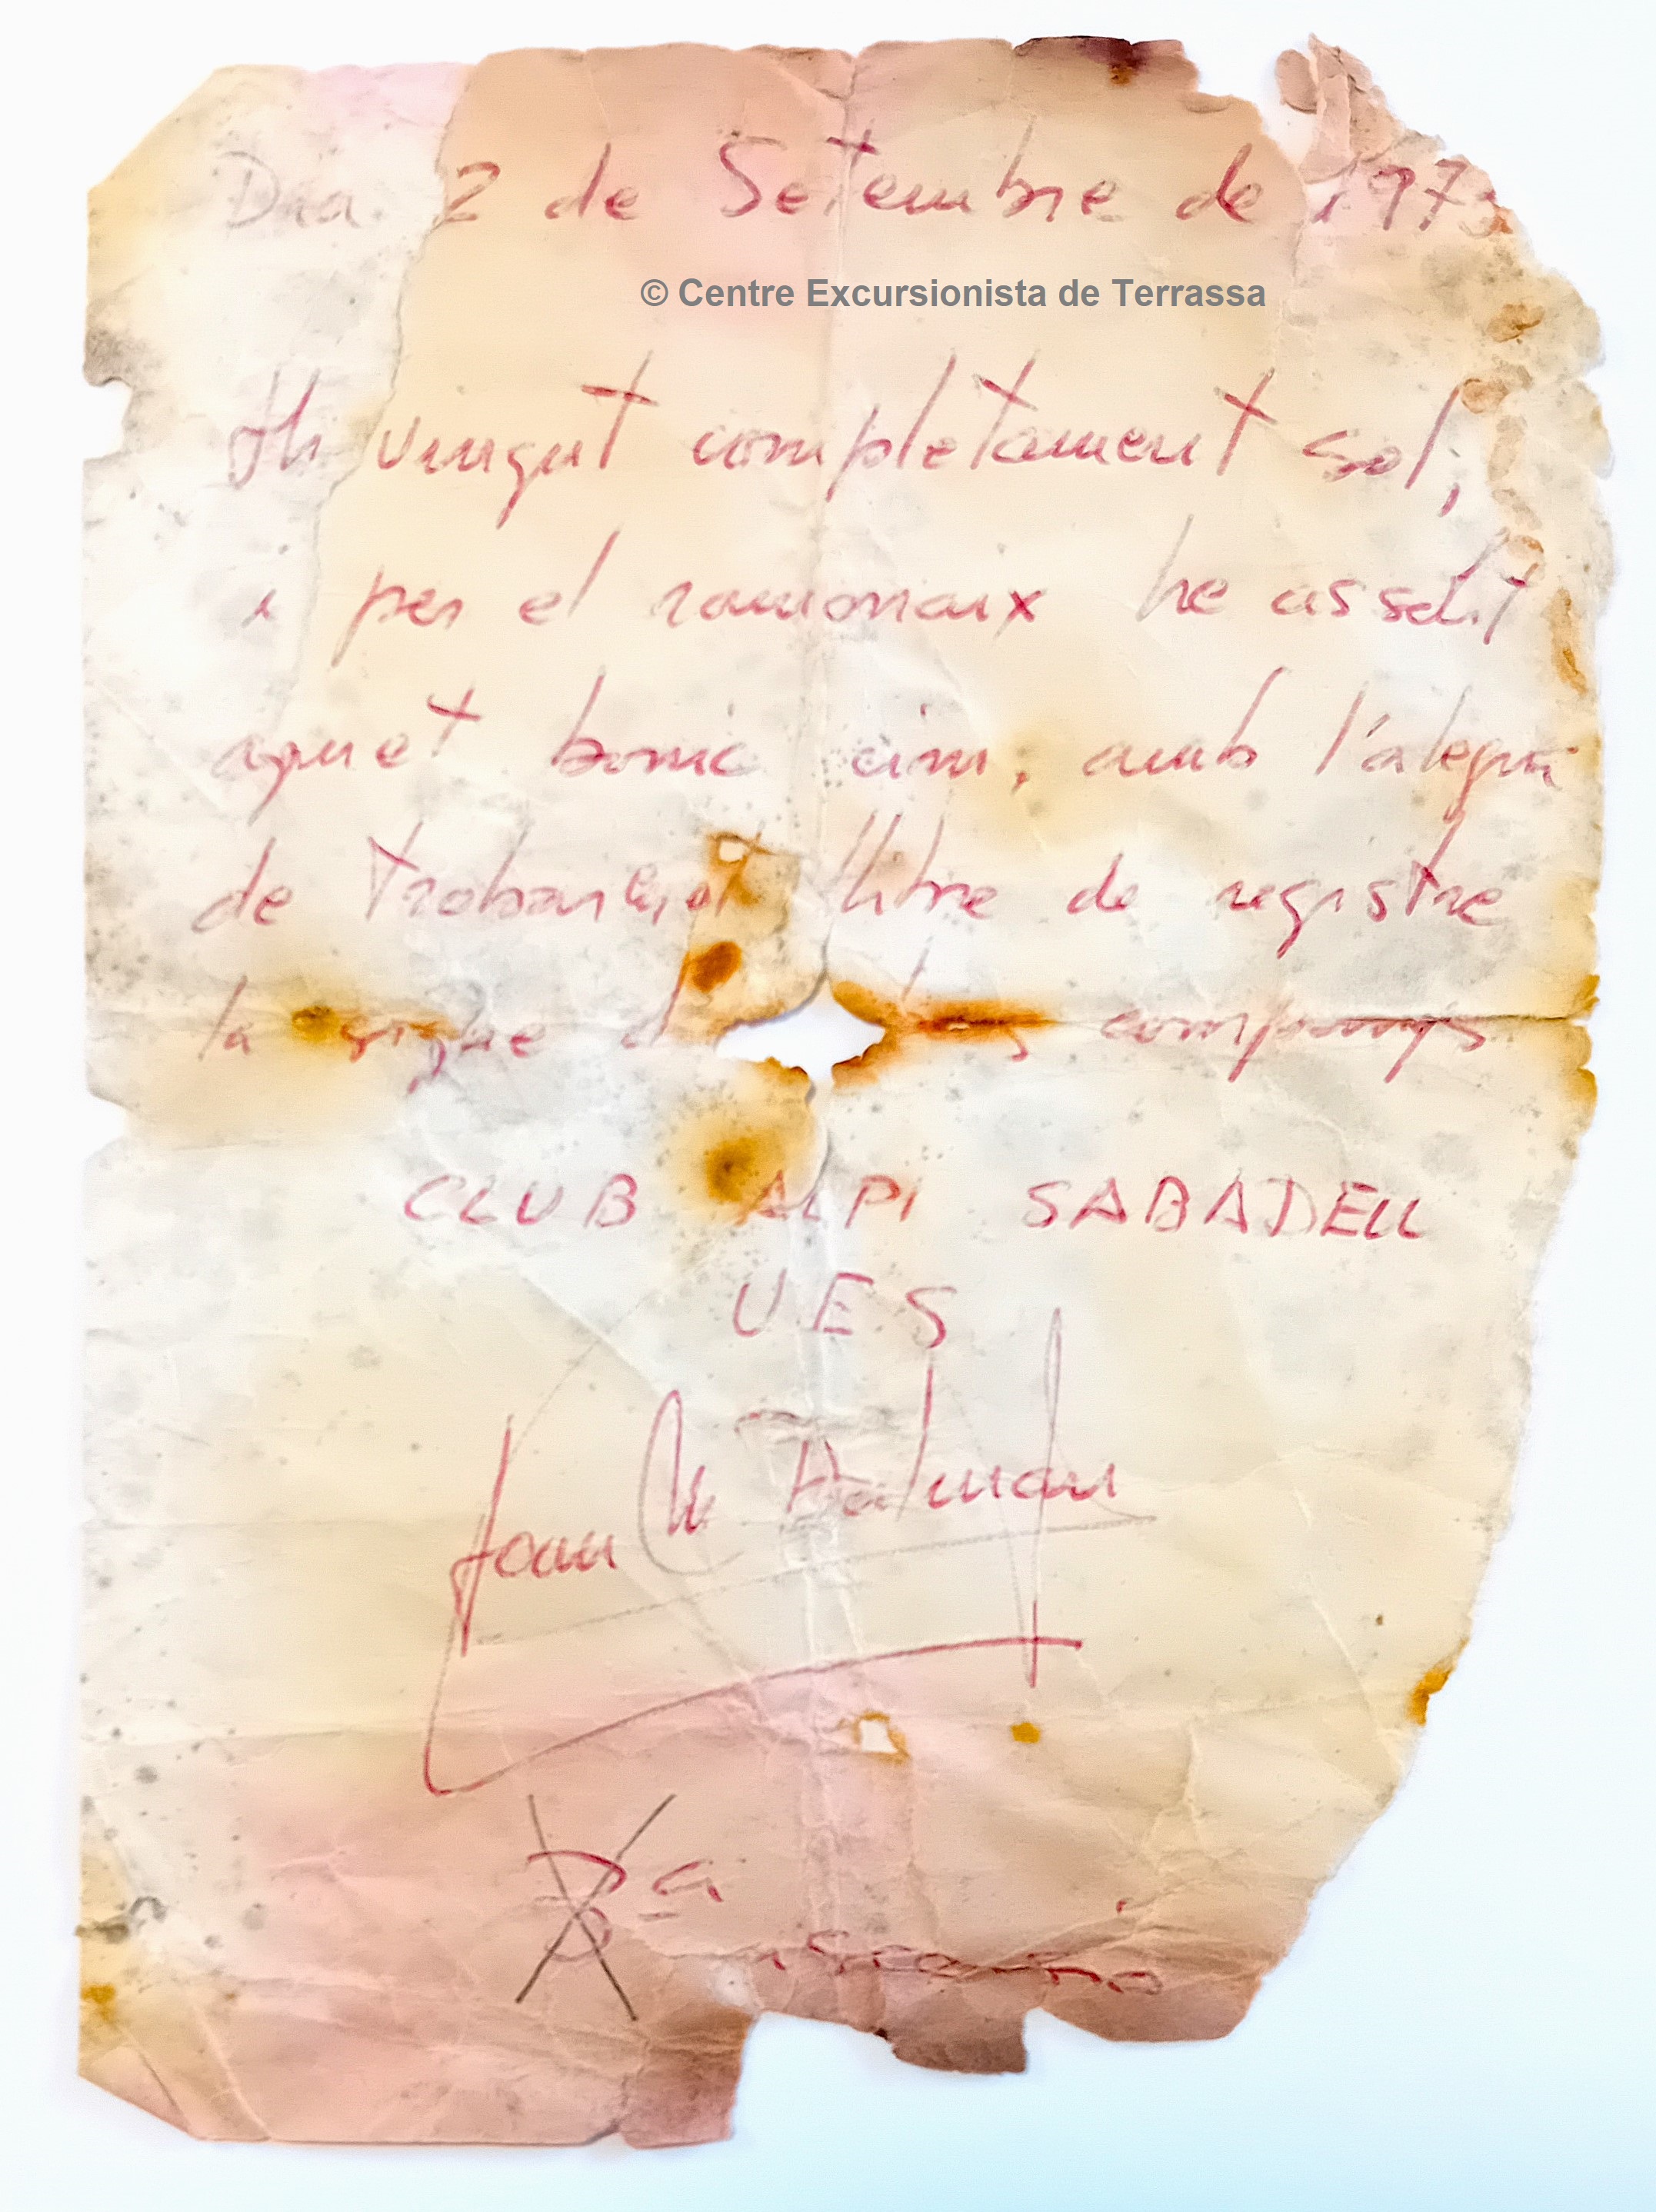 Dia 2 de Setembre de 1973
© Centre Excursionista de Terrassa
vingut completament sol,
i per el ramonaix he assolit
aquet bonic cim, amb l'alegria
de trobar llibre de registre
la companys
CLUB ALPI SABADELL
U E S
Joan M Dalmau
3ª